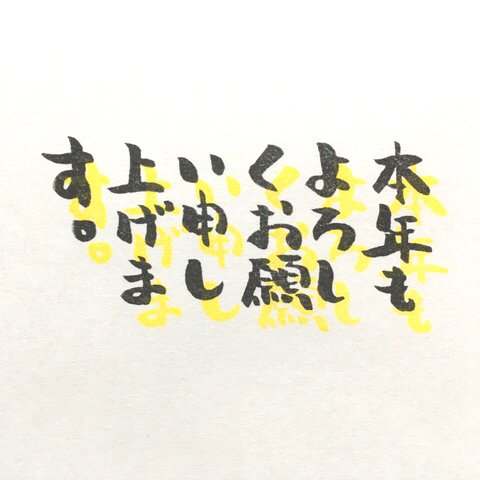 本年も
よろし
くお願
い申し
上げま
す。